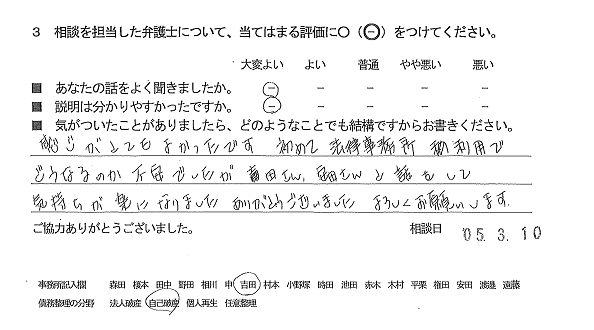 3 相談を担当した弁護士について、当てはまる評価に○（⊖）をつけてください。
大変よい よい 普通 やや悪い 悪い
■ あなたの話をよく聞きましたか。 − − − − −
■ 説明は分かりやすかったですか。 − − − − −
■ 気がついたことがありましたら、どのようなことでも結構ですからお書きください。
感じがとてもよかったです 初めて 法律事務所 初利用で
どうなるのか 不安でしたが 吉田さん、 さんと 話をして
気持ちが 楽に なりました ありがとうございました よろしくお願いします.
ご協力ありがとうございました。 相談日 05.3.10
事務所記入欄 森田 榎本 田中 野田 相川 申 吉田 村本 小野塚 時田 池田 赤木 木村 平栗 権田 安田 渡邉 遠藤
債務整理の分野 法人破産 自己破産 個人再生 任意整理